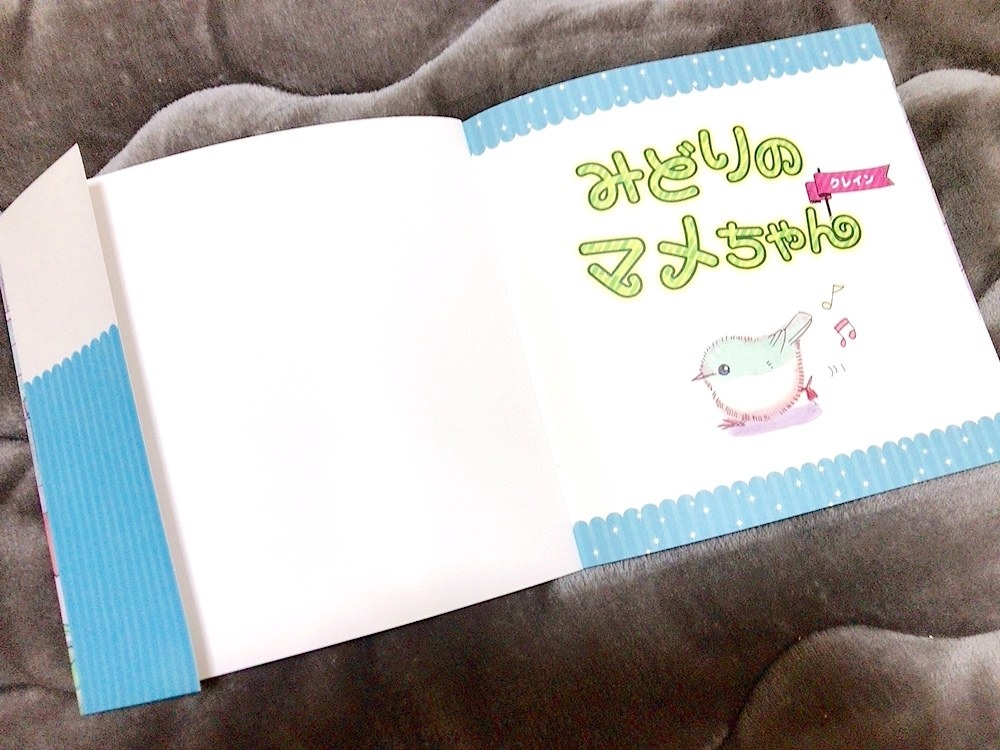 みどりの
クレイン
マメちゃん